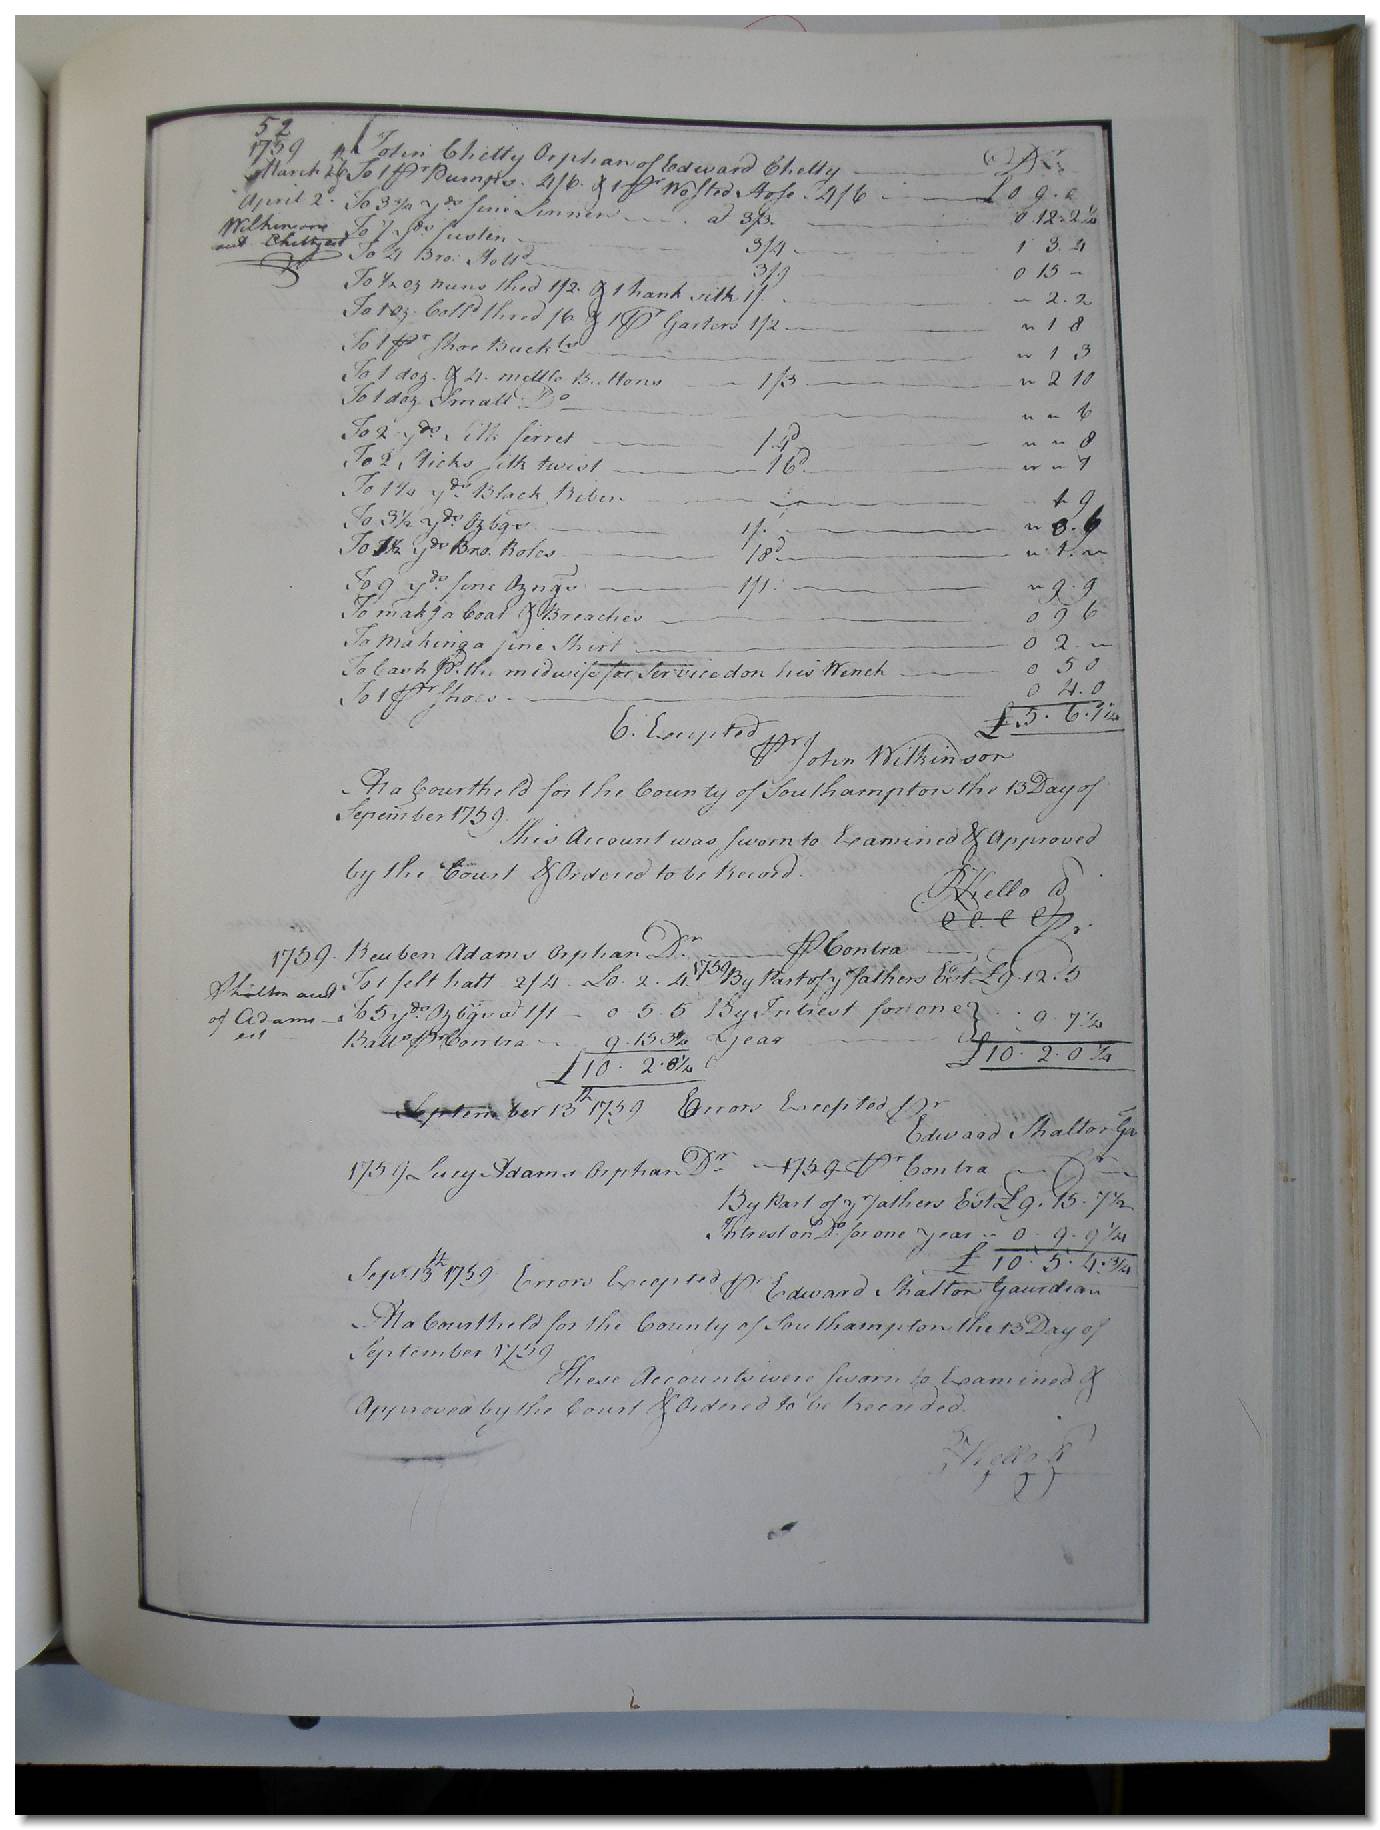 52
1759 John Chitty Orphan of Edward Chitty Dr.
March 26 To 1 pr Pumps. 4/6. & 1 pr Wosted Hose. 4/6 £0 9. 0
April 2. To 3 3/4 yds fine Linnen at 3/3. 0. 12. 2 1/4
Wilkinson To 7 yds fusten 3/4 1 3. 4
and Chittys est To 4 Bro. Holld 3/9 0 15 -
To 1/2 oz nuns thed 1/2. & 1 hank silk 1/. " 2. 2
To 1 oz. Colld thred /6 & 1 pr Garters 1/2 " 1 8
To 1 pr Shoe Buckls " 1 3
To 1 doz. & 4. mettle Buttons 1/3 " 2 10
To 1 doz Small Do " " 6
To 2 yds Silk ferret /4d " " 8
To 2 Sticks silk twist 16d " " 7
To 1 1/2 yds Black Riben 1 9
To 3 1/2 yds Ozbgs 1/. " 3. 6
To yds Bro. Roles /8d " 1. "
To 9 yds fine Ozngs 1/1. " 9. 9
To makg a Coat & Breaches 0 9 6
To making a fine Shirt 0 2. "
To Cash pd. the midwife for Service don his Wench 0 5 0
To 1 pr Shoes 0 4. 0
£5. 6. 1 1/4
E. Excepted
pr John Wilkinson
At a Court held for the County of Southampton the 13 Day of
September 1759.
This Account was sworn to Examined & Approved
by the Court & Ordered to be Record.
1759. Reuben Adams Orphan Dr. pr Contra
Shelton and To 1 felt hatt 2/4. £0. 2. 4. 1759 By Part of ye fathers Est £9. 12. 5
of Adams To 5 yds. Ozbgs at 1/1 0 5. 5 By Intrest for one } 9. 7 1/4
est Balle pr Contra 9. 15 3 1/4 year
£10. 2. 0 1/4 £10. 2. 0 1/4
September 13th 1759 Errors Excepted pr
Edward Shalton Gn
1759 Lucy Adams Orphan Dr 1759 pr Contra
By Part of ye fathers Est £9. 15. 7 1/2
Intrest on Do for one year 0. 9. 9 1/4
£10. 5. 4. 3/4
Sept. 13th 1759 Errors Excepted pr Edward Shalton Gaurdian
At a Court held for the County of Southampton the 13 Day of
September 1759
These Accounts were sworn to Examined &
Approved by the Court & Ordered to be Recorded.